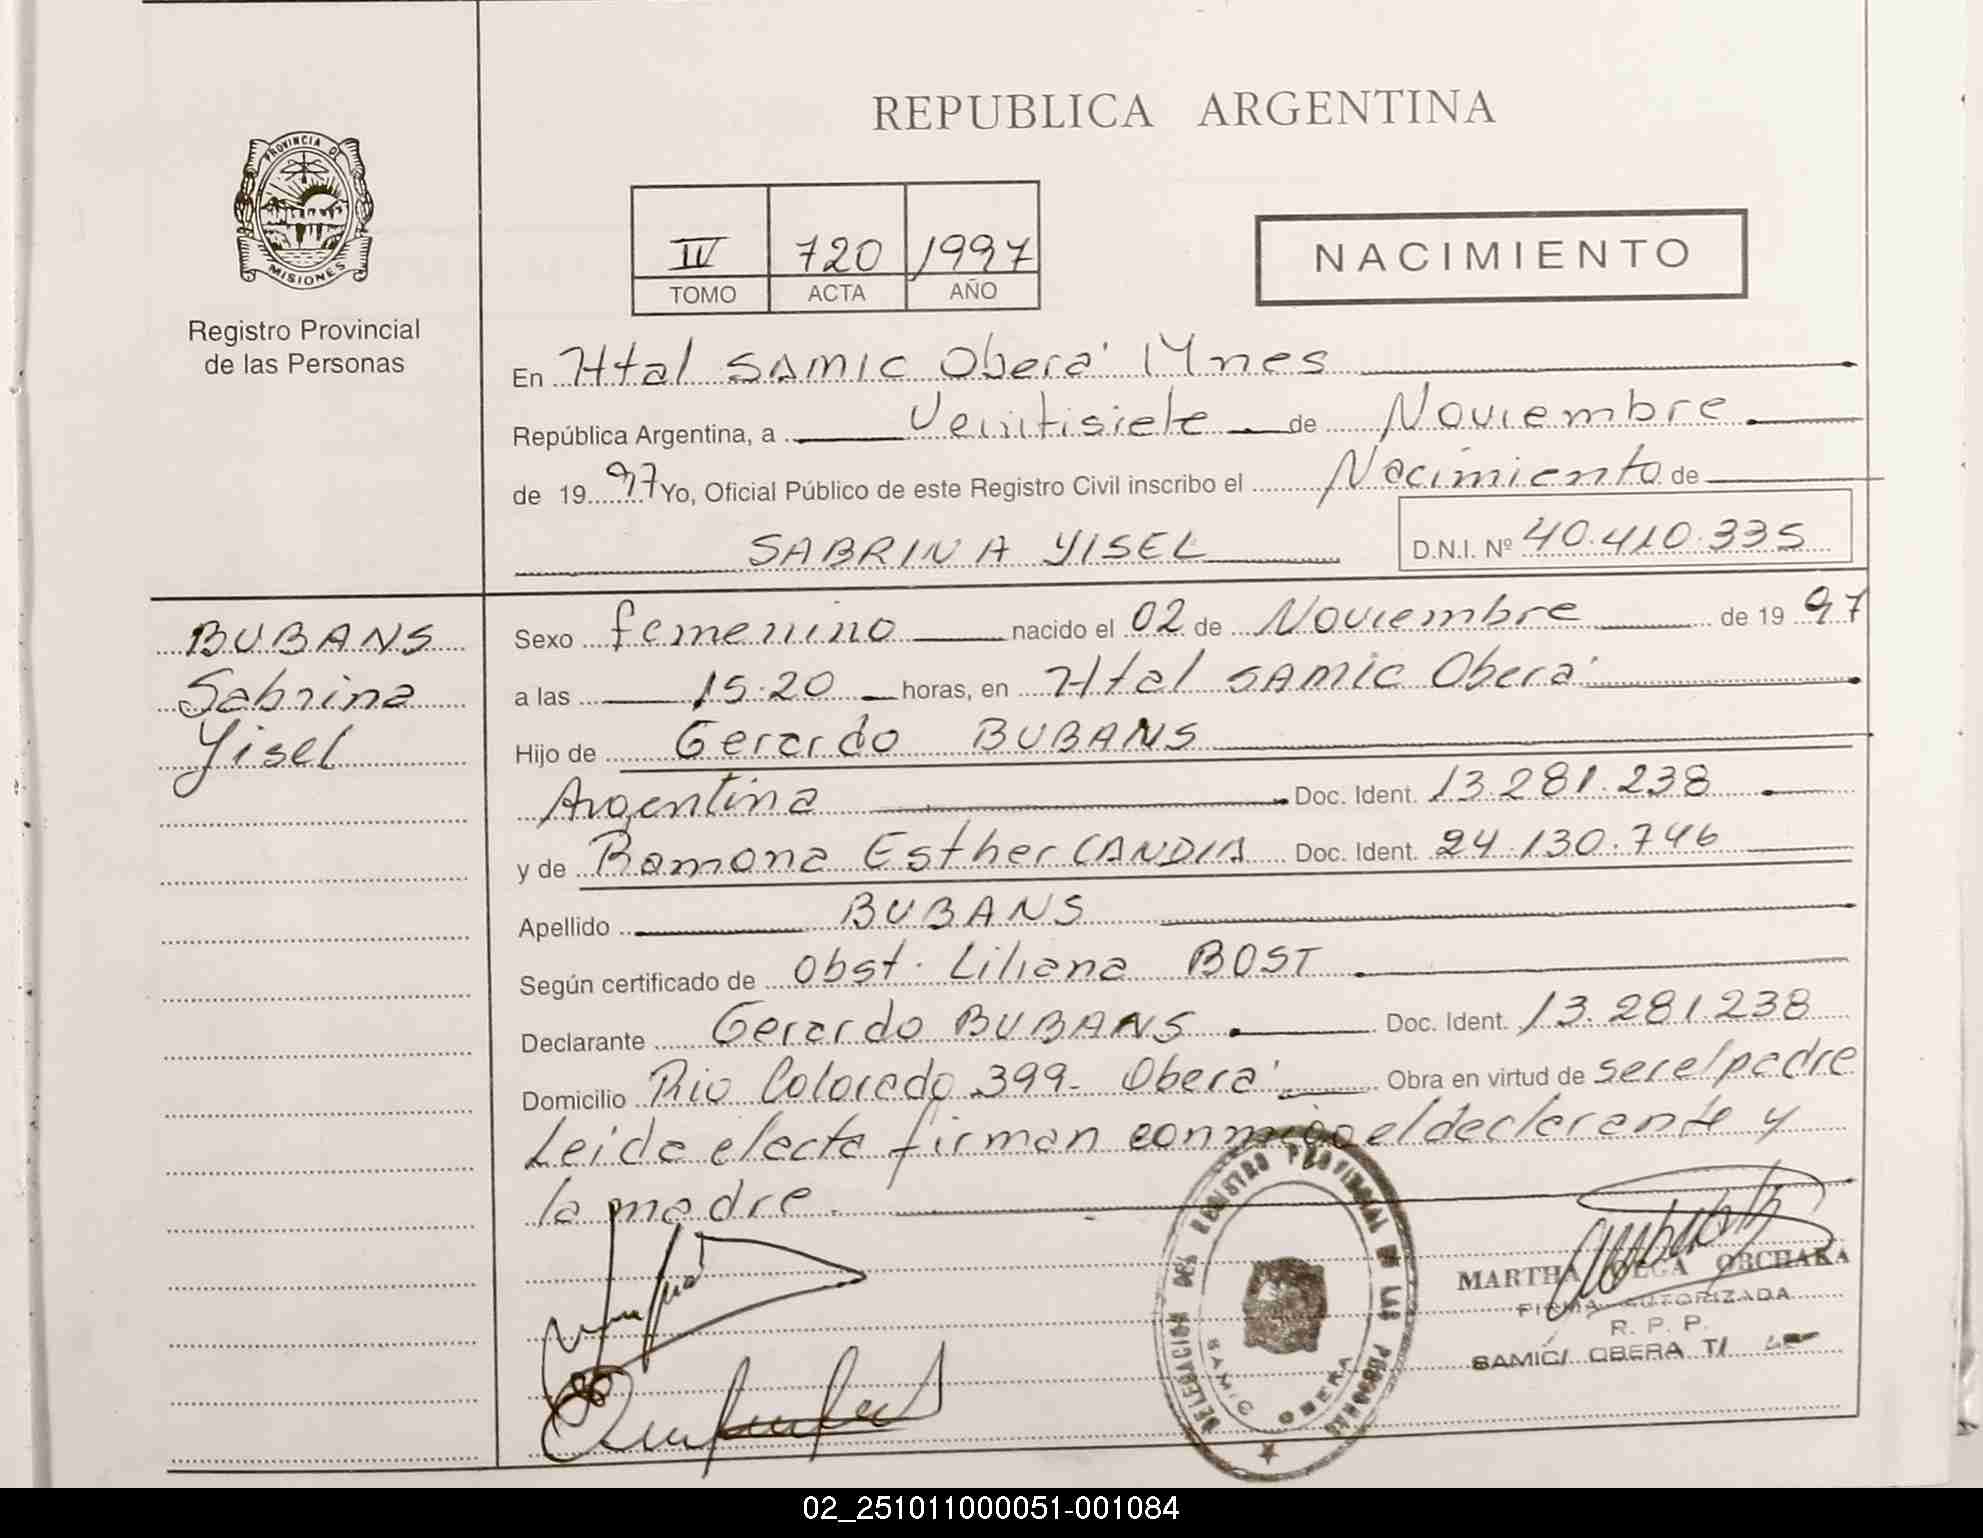 REPUBLICA ARGENTINA
PROVINCIA DE
MISIONES
Registro Provincial
de las Personas
IV 720 1997
TOMO ACTA AÑO
NACIMIENTO
En Htal SAMIC Oberá Mnes
República Argentina, a Veintisiete de Noviembre
de 1997 Yo, Oficial Público de este Registro Civil inscribo el Nacimiento de
SABRINA YISEL D.N.I. Nº 40.410.335
BUBANS
Sabrina
Yisel
Sexo femenino nacido el 02 de Noviembre de 1997
a las 15:20 horas, en Htal SAMIC Oberá
Hijo de Gerardo BUBANS
Argentina Doc. Ident. 13.281.238
y de Ramona Esther CANDIA Doc. Ident. 24.130.746
Apellido BUBANS
Según certificado de Obst. Liliana BOST
Declarante Gerardo BUBANS Doc. Ident. 13.281.238
Domicilio Rio Colorado 399- Oberá Obra en virtud de ser el padre
Leida el acta firman conmigo el declarante y
la madre.
DELEGACION DEL REGISTRO PROVINCIAL DE LAS PERSONAS
SAMIC OBERA
MARTHA OLGA ORCHAKA
FIRMA AUTORIZADA
R. P. P.
SAMIC/ OBERA T/
02_251011000051-001084